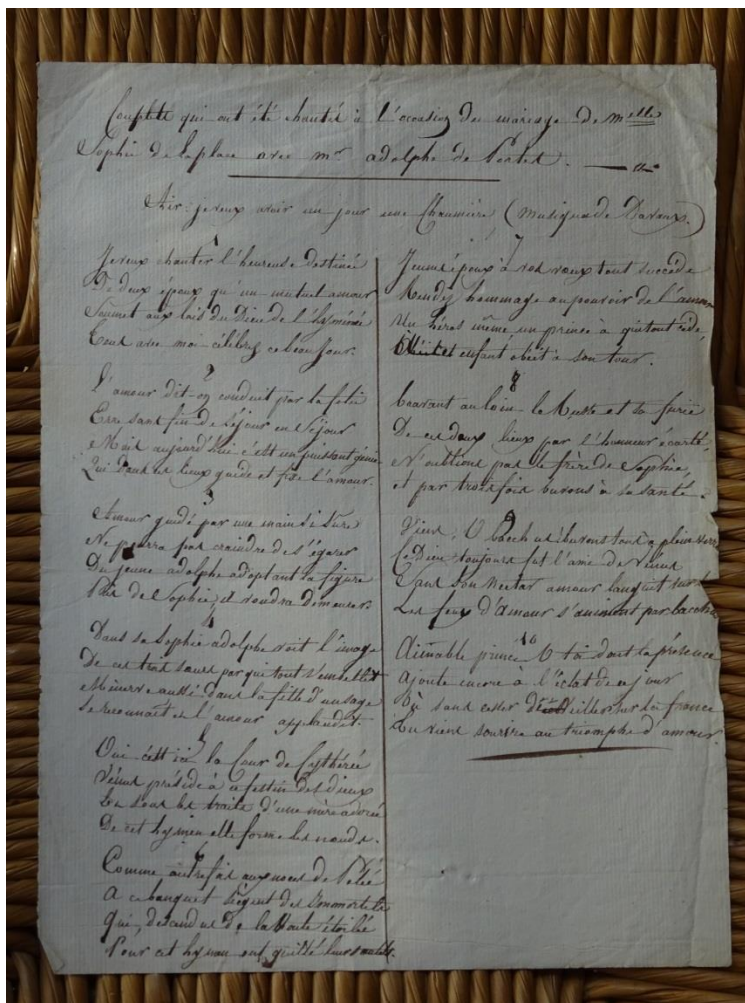 Couplets qui ont été chantés à l'occasion du mariage de melle
Sophie de laplace avec mr adolphe de Portes.
Air: je veux avoir un jour une Chaumière (musique de Davaux.)
1
Je veux chanter l'heureuse destinée
De deux époux qu'un mutuel amour
Soumet aux lois du Dieu de l'hyménée
Tous avec moi célébrez ce beau jour.
2
L'amour dit-on conduit par la folie
Erre sans fin de séjour en séjour
Mais aujourd'hui c'est un puissant génie
Qui dans ces lieux guide et fixe l'amour.
3
Amour guidé par une main si sûre
Ne pourra pas craindre de s'égarer
Du jeune adolphe adoptant la figure
Près de Sophie, il voudra demeurer.
4
Dans sa Sophie adolphe voit l'image
De ces trois sœurs par qui tout s'embellit
Minerve aussi dans la fille d'un sage
Se reconnaît et l'amour applaudit.
5
Oui c'est ici la Cour de Cythérée
Vénus préside à ce festin des dieux
Et sous les traits d'une mère adorée
De cet hymen elle forme les nœuds.
6
Comme autrefois aux noces de Pélée
A ce banquet siègent des Immortels
Qui, descendus de la Voute étoilée
Pour cet hymen ont quitté leurs autels.
7
Jeunes époux à vos vœux tout succède
Rendez hommage au pouvoir de l'amour
Un héros même un prince à qui tout cède
et enfant obéit à son tour.
8
bravant au loin le Russe et sa furie
De ces doux lieux par l'honneur écarté
N'oublions pas le frère de Sophie,
et par trois fois buvons à sa santé.
9
Viens, O bacchus buvons tous à plein verre
Ce Dieu toujours fut l'ami de Vénus
Sans son Nectar amour languit sur
Les feux d'amour s'animent par bacchus
10
Aimable prince O toi dont la présence
ajoute encore à l'éclat de ce jour
Où sans cesser de veiller sur la france
Tu viens sourire au triomphe d'amour.